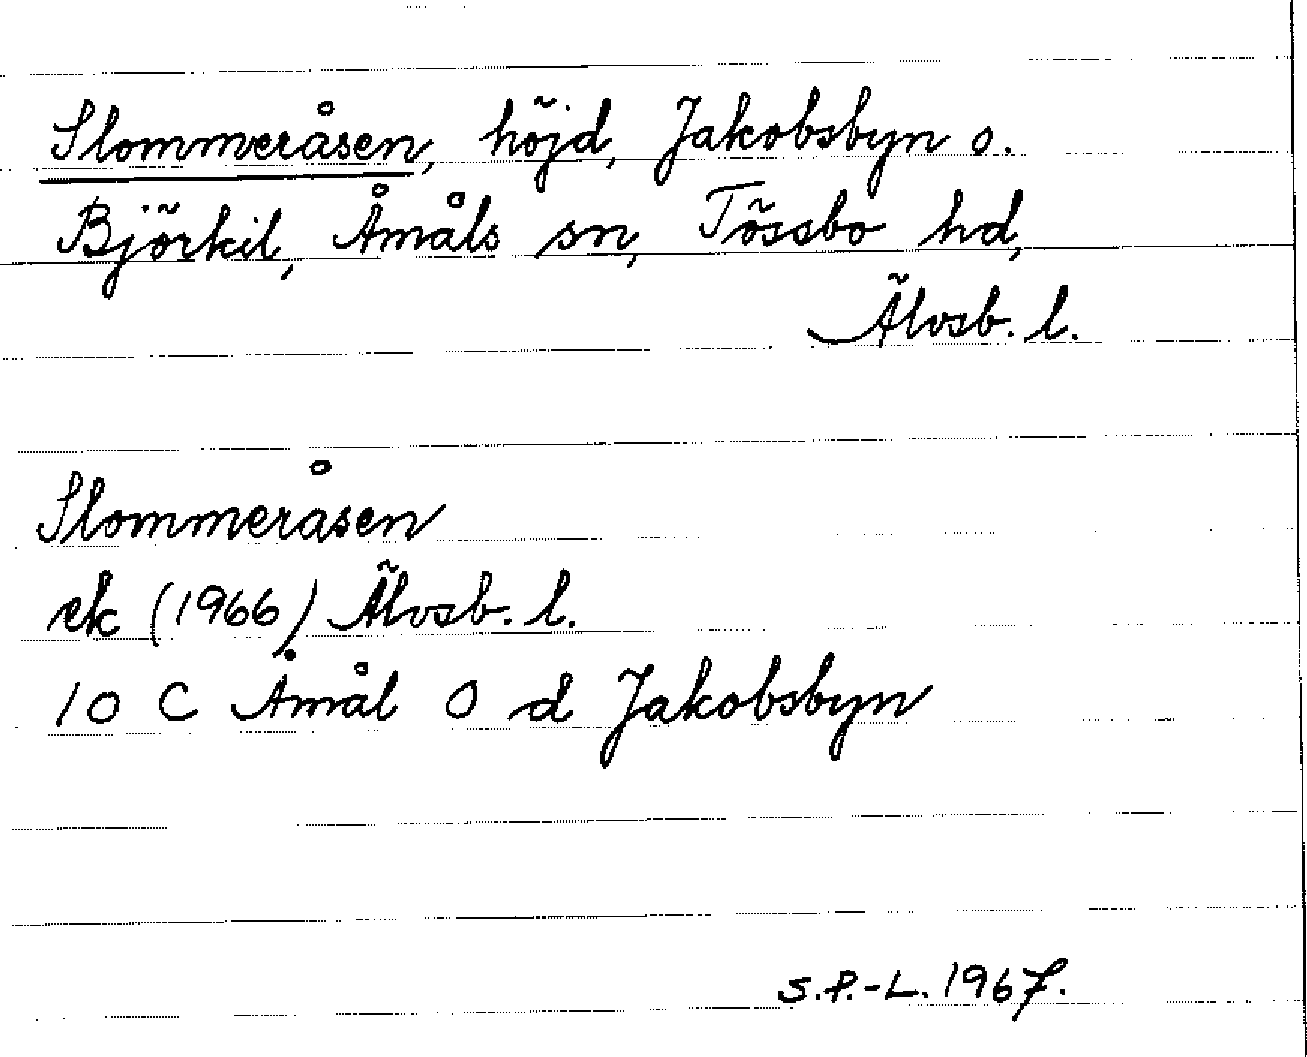 Slommeråsen, höjd, Jakobsbyn o.
Björkil, Åmåls sn, Tössbo hd,
Älvsb. l.
Slommeråsen
ek (1966) Älvsb. l.
10 C Åmål O d Jakobsbyn
S.P.-L. 1967.